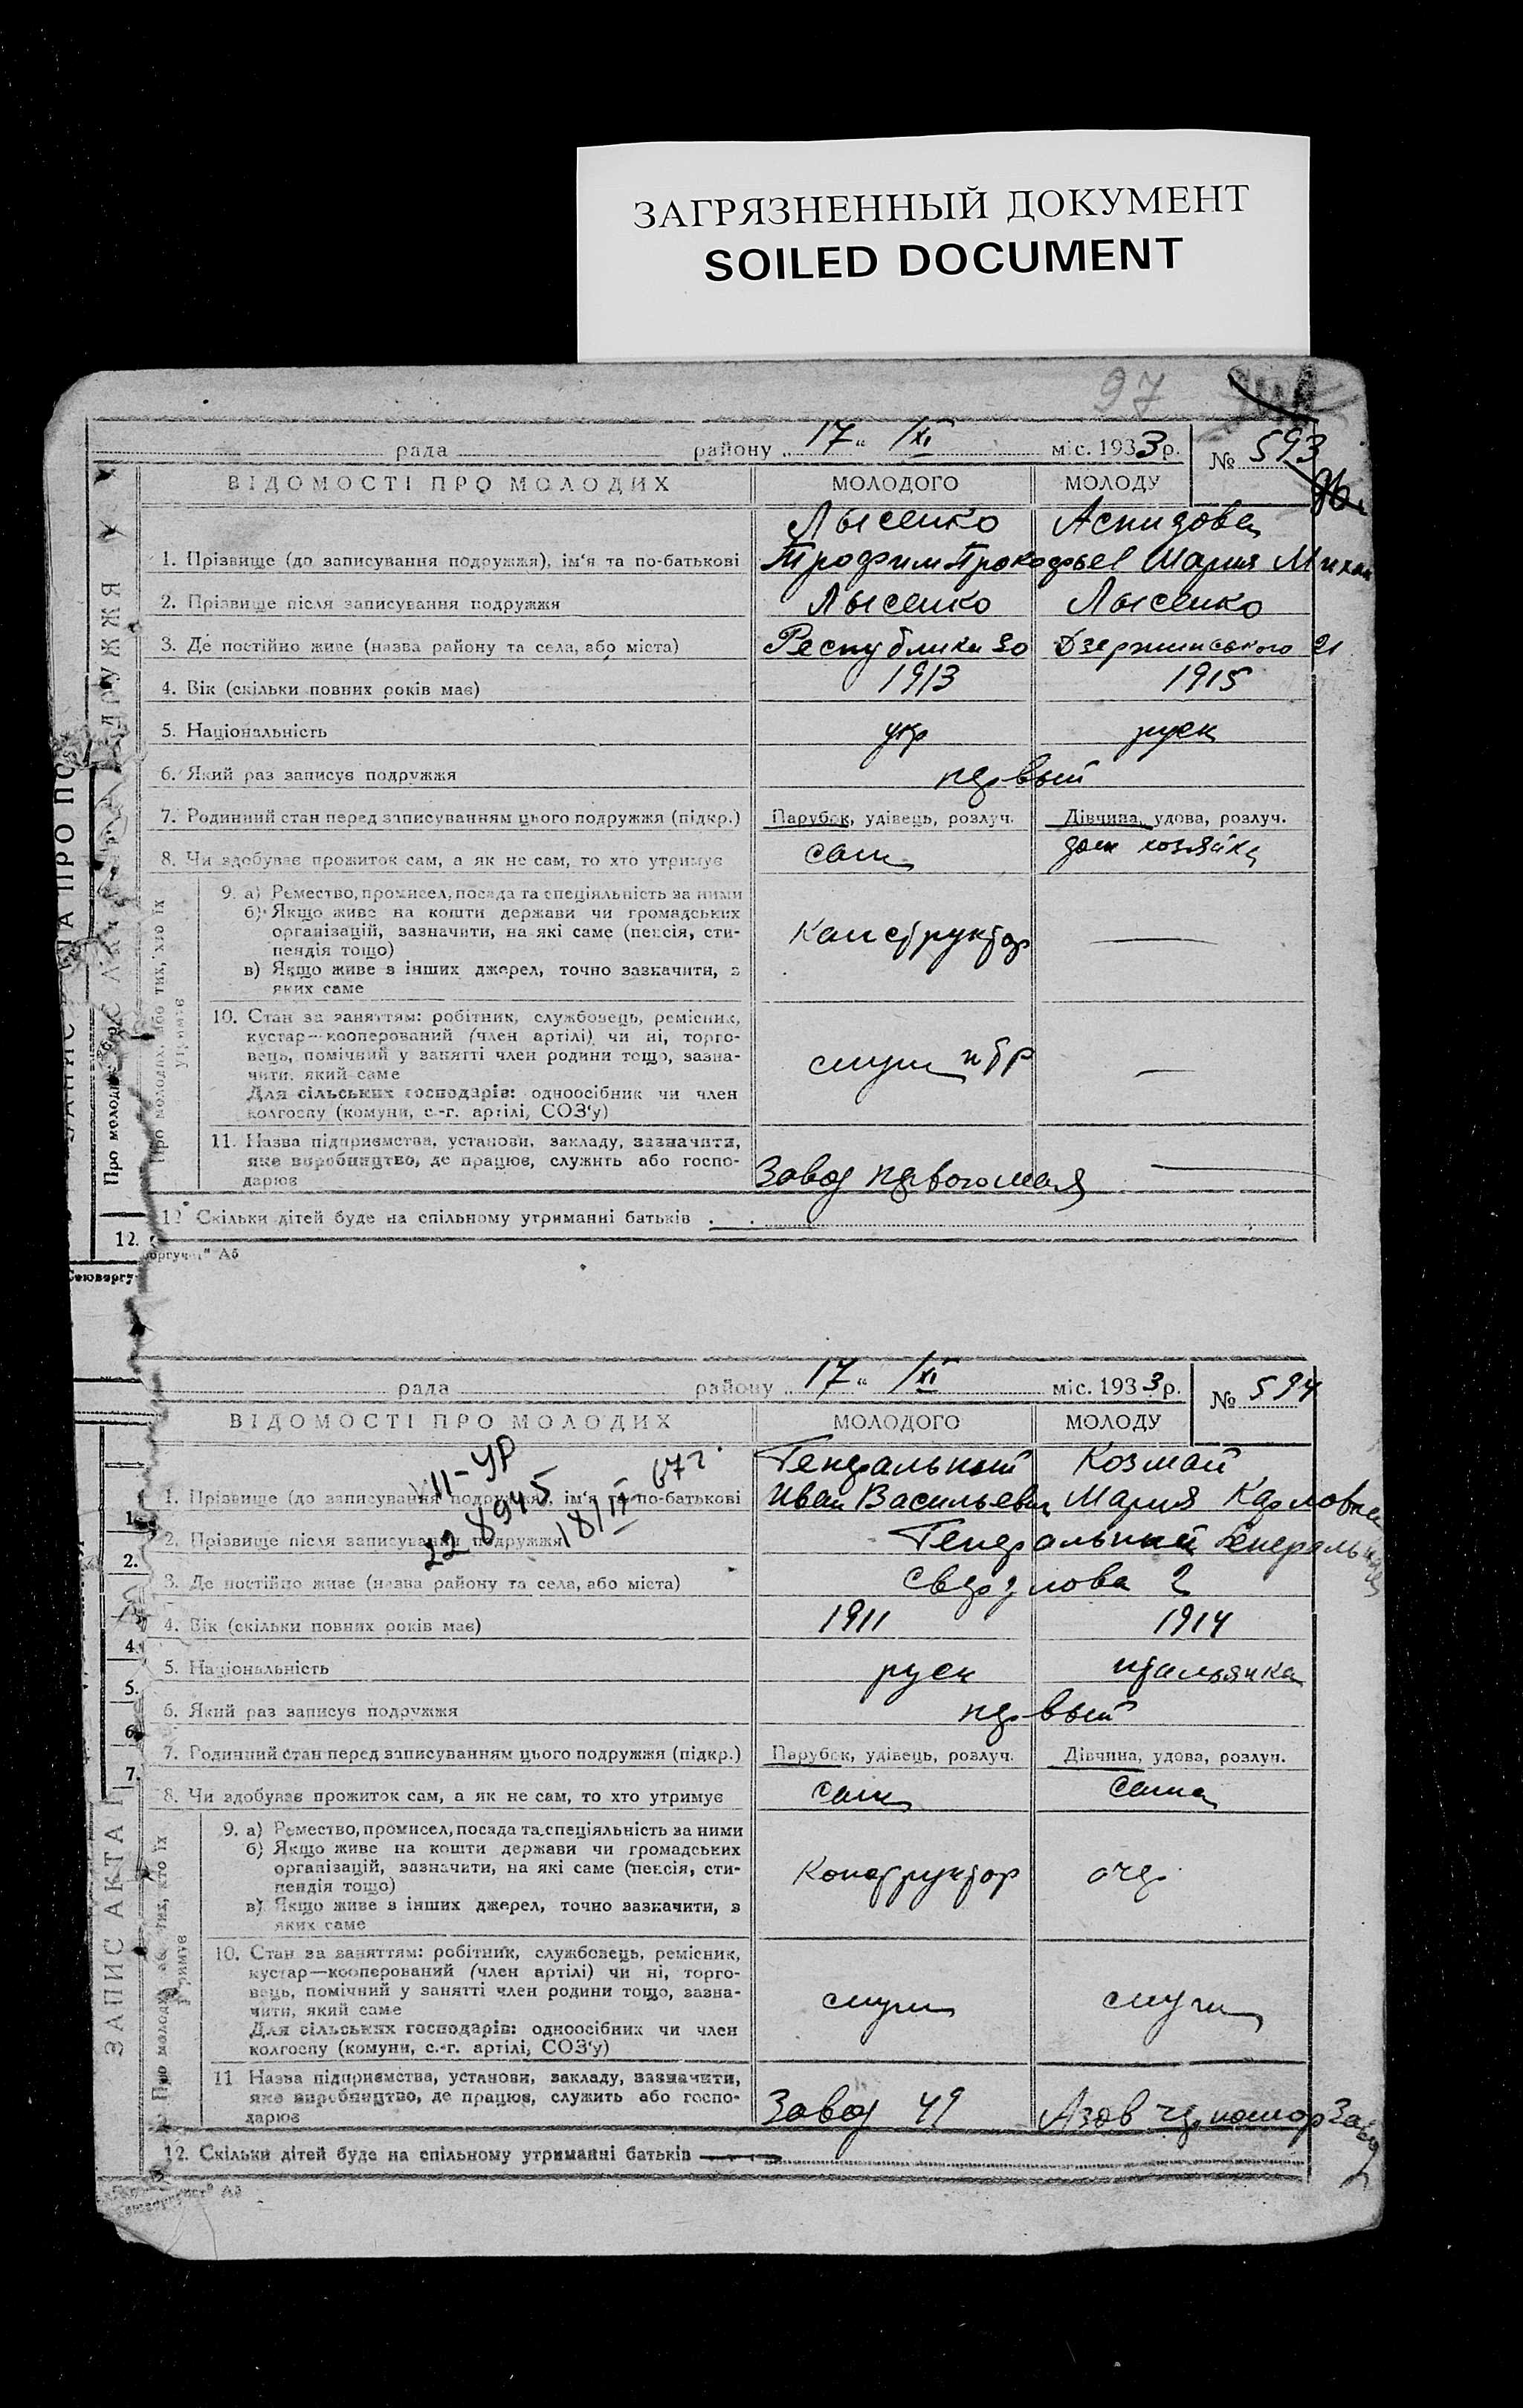 ЗАГРЯЗНЕННЫЙ ДОКУМЕНТ
SOILED DOCUMENT
97
рада району „17“ /XI міс. 1933 р. № 593
ВІДОМОСТІ ПРО МОЛОДИХ МОЛОДОГО МОЛОДУ
Лысенко Аспидова
1. Прізвище (до записування подружжя), ім'я та по-батькові Трофим Прокофьев Мария Михаи
2. Прізвище після записування подружжя Лысенко Лысенко
3. Де постійно живе (назва району та села, або міста) Республики 30 Дзержинського 21
4. Вік (скільки повних років має) 1913 1915
5. Національність укр русск
6. Який раз записує подружжя первый
7. Родинний стан перед записуванням цього подружжя (підкр.) Парубок, удівець, розлуч. Дівчина, удова, розлуч.
8. Чи здобуває прожиток сам, а як не сам, то хто утримує сам дом хозяйка
9. а) Ремество, промисел, посада та спеціяльність за ними
б) Якщо живе на кошти держави чи громадських
організацій, зазначити, на які саме (пенсія, сти-
пендія тощо) Конструктор —
в) Якщо живе з інших джерел, точно зазначити, з
яких саме
10. Стан за заняттям: робітник, службовець, ремісник,
кустар—кооперований (член артілі) чи ні, торго-
вець, помічний у занятті член родини тощо, зазна-
чити, який саме служ —
Для сільських господарів: одноосібник чи член
колгоспу (комуни, с.-г. артілі, СОЗ'у)
11. Назва підприємства, установи, закладу, зазначити,
яке виробництво, де працює, служить або госпо-
дарює Завод первого мая —
12 Скільки дітей буде на спільному утриманні батьків
Про молодих, або тих, хто їх утримує
12.
рада району „17“ /XI міс. 1933 р. № 594
ВІДОМОСТІ ПРО МОЛОДИХ МОЛОДОГО МОЛОДУ
VII-УР
22 8945
18/II 67 г.
Генеральный Козмай
1. Прізвище (до записування подружжя), ім'я та по-батькові Иван Васильевич Мария Карловна
2. Прізвище після записування подружжя Генеральный Генеральная
3. Де постійно живе (назва району та села, або міста) Свердлова 2
4. Вік (скільки повних років має) 1911 1914
5. Національність русск итальянка
6. Який раз записує подружжя первый
7. Родинний стан перед записуванням цього подружжя (підкр.) Парубок, удівець, розлуч. Дівчина, удова, розлуч.
8. Чи здобуває прожиток сам, а як не сам, то хто утримує сам сама
9. а) Ремество, промисел, посада та спеціяльність за ними
б) Якщо живе на кошти держави чи громадських
організацій, зазначити, на які саме (пенсія, сти-
пендія тощо) Конструктор
в) Якщо живе з інших джерел, точно зазначити, з
яких саме
10. Стан за заняттям: робітник, службовець, ремісник,
кустар—кооперований (член артілі) чи ні, торго-
вець, помічний у занятті член родини тощо, зазна-
чити, який саме служ служ
Для сільських господарів: одноосібник чи член
колгоспу (комуни, с.-г. артілі, СОЗ'у)
11 Назва підприємства, установи, закладу, зазначити,
яке виробництво, де працює, служить або госпо-
дарює Завод 49 Азов черномор
12. Скільки дітей буде на спільному утриманні батьків —
ЗАПИС АКТА